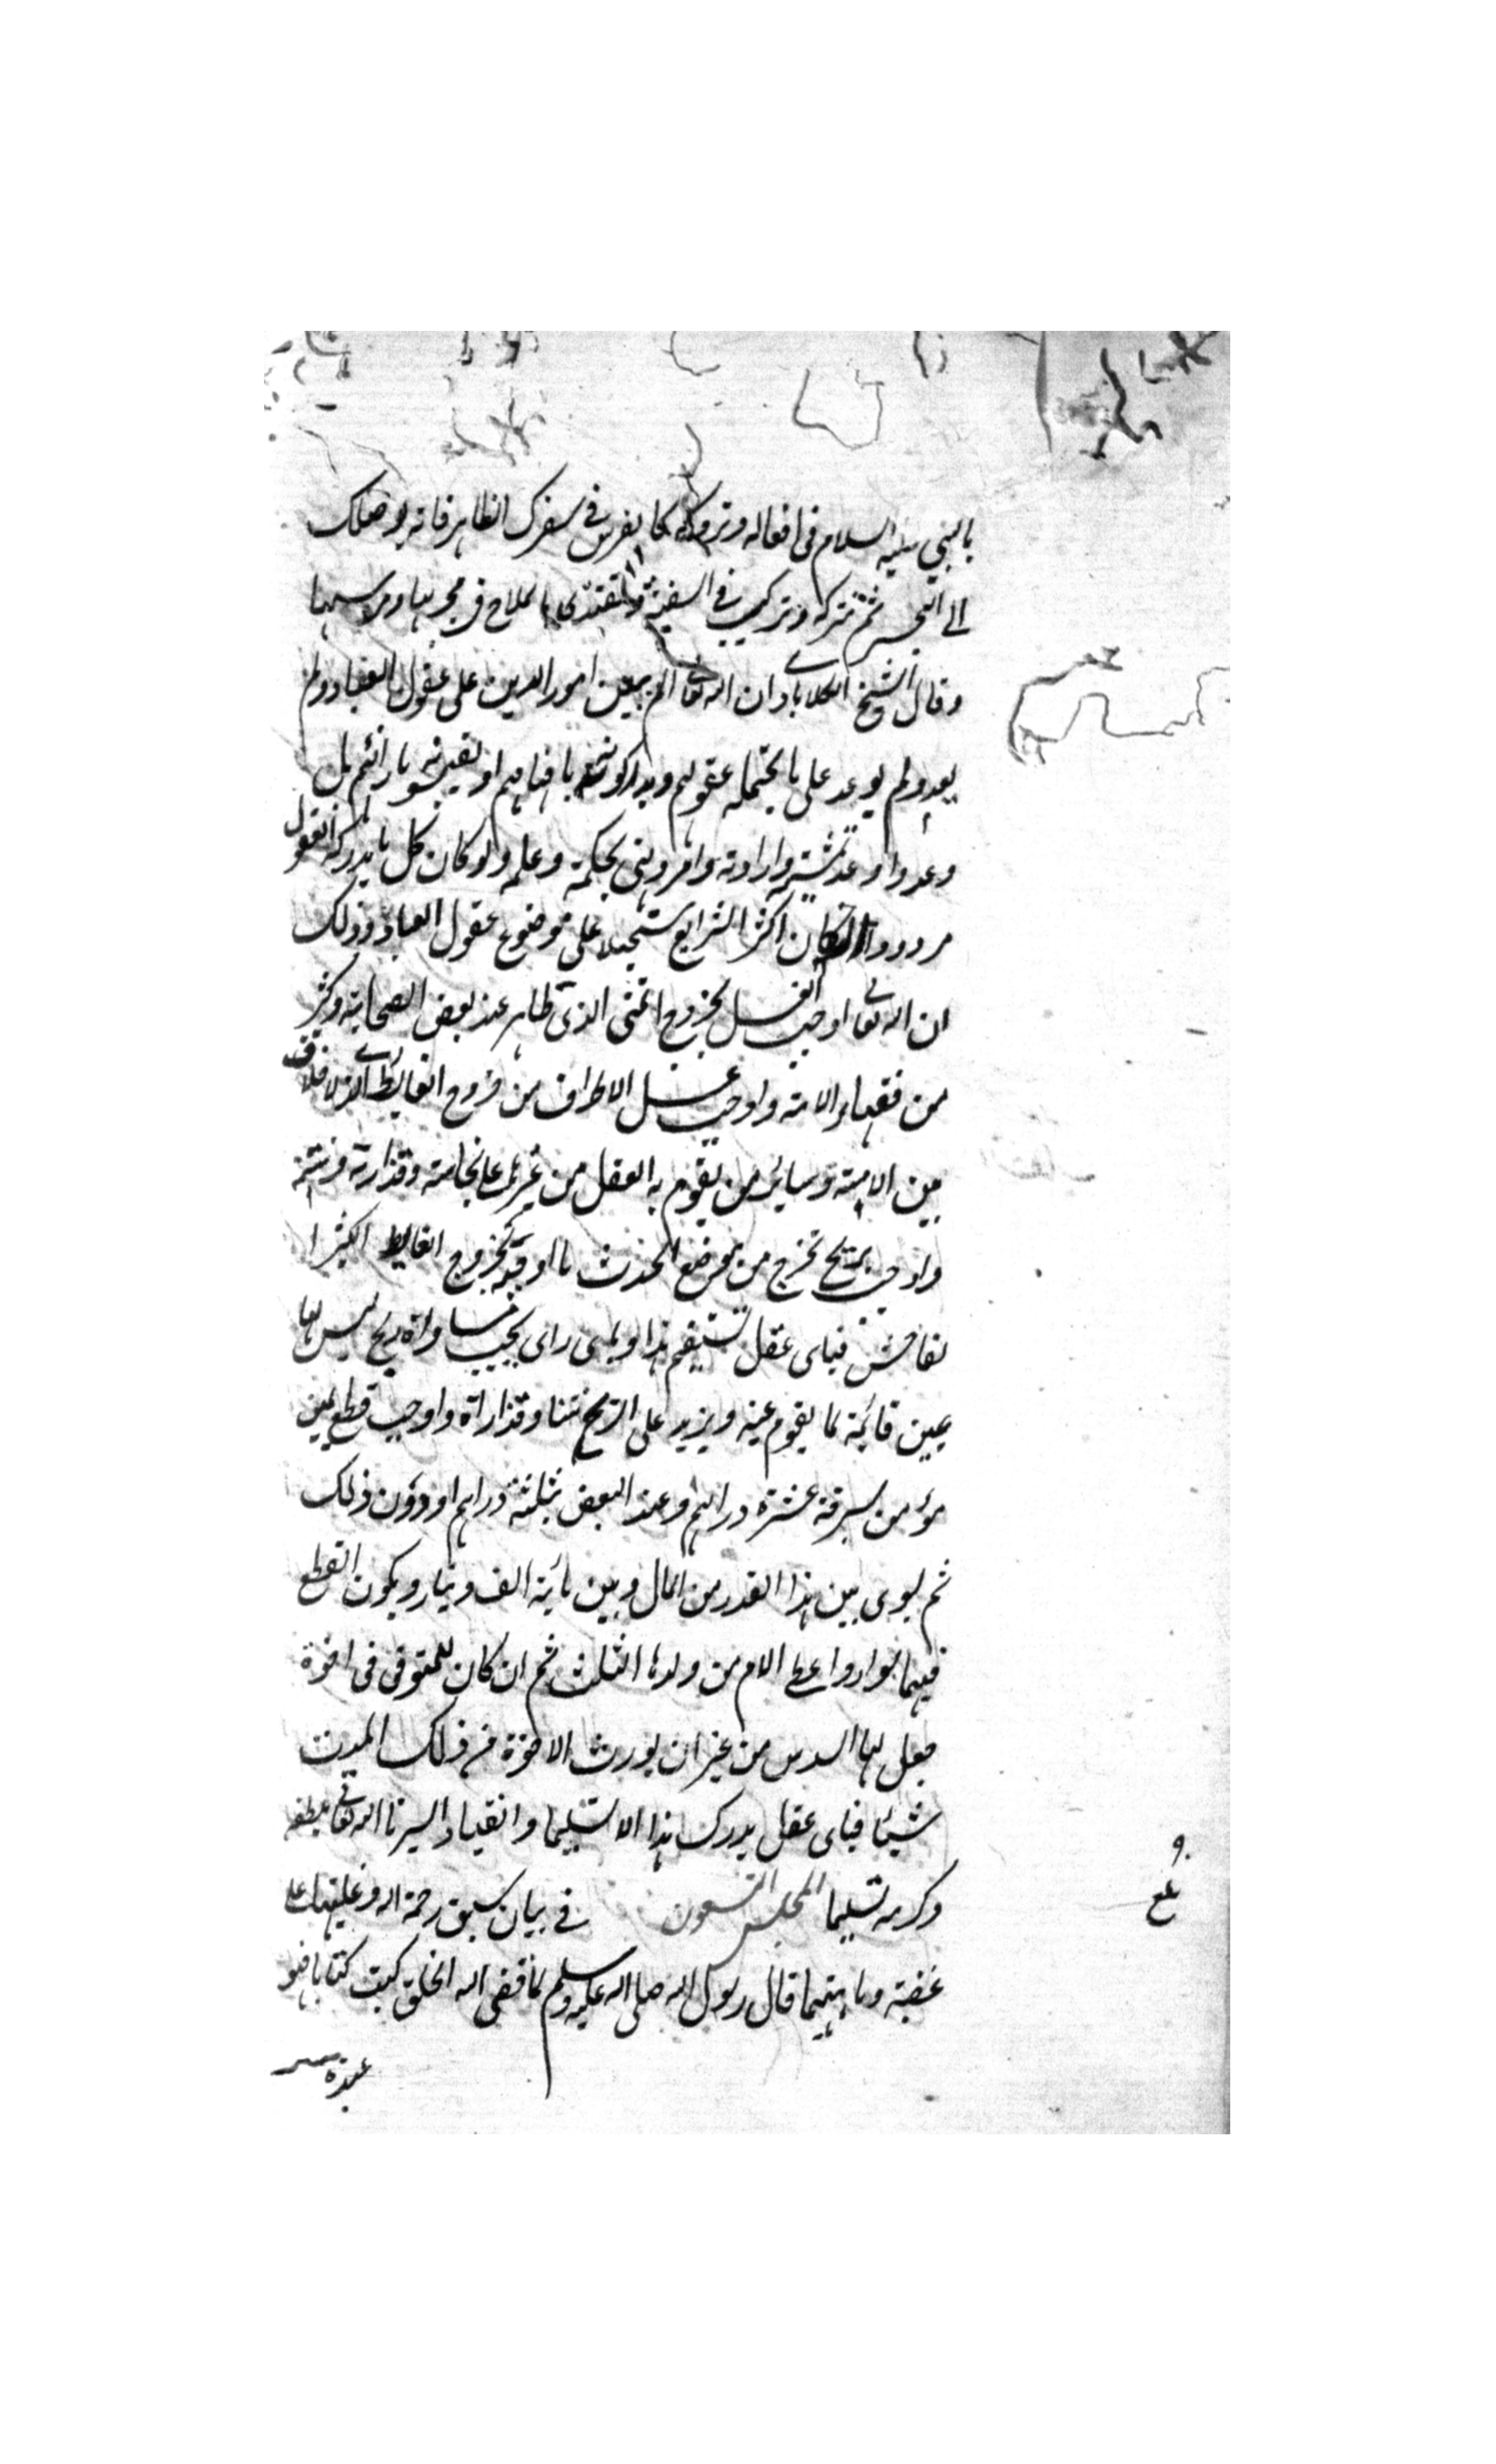 بالنبي عليه السلام في افعاله وتروكه كالفرس في سفرك الظاهر فانه يوصلك
الى البحر ثم تتركه وتركب في السفينة وتقتدى بالملاح في مجريها ومرسيها
وقال الشيخ الكلابادي ان الله تعالى لم يبين امور الدين على عقول العباد ولم
يعد ولم يوعد على ما يحتمله عقولهم ويدركونه بافهامهم او يقيسونه بارائهم بل
وعد واوعد بمشيته وارادته وامر ونهى بحكمته وعلمه ولو كان كل ما يدركه العقول
مردودا لكان اكثر الشرايع مستحيلا على موضوع عقول العباد وذلك
ان الله تعالى اوجب الغسل بخروج المنى الذى طاهر عند بعض الصحابة وكثير
من فقهاء الامة واوجب غسل الاطراف من خروج الغايط الذى لا خلاف
بين الامة وسائر من يقوم به العقل من غيرهم على نجاسته وقذارته ونتنه
واوجب بريح تخرج من موضع الحدث ما اوجبه بخروج الغايط الكثير ا
لفاحش فباى عقل تستقيم هذا وباى راى يجب مساواة ريح ليس لها
عين قائمة لما يقوم عينه ويزيد على الريح نتنا وقذاراة واوجب قطع يمين
مؤمن بسرقة عشرة دراهم وعند البعض بثلثة دراهم او دون ذلك
ثم يسوى بين هذا القدر من المال وبين مائة الف دينار ويكون القطع
فيهما سوا واعطى الام من ولدها الثلث ثم ان كان للمتوفى في اخوة
جعل لها السدس من غير ان يورث الاخوة من ذلك السدس
شيئا فباى عقل يدرك هذا الا تسليما وانقيادا يسرنا الله تعالى بلطفه
وكرمه تسليما المجلس التسعون في بيان سبق رحمة الله وغلبتها على
غضبه وما بينهما قال رسول الله صلى الله عليه وسلم لما قضى الله الخلق كتب كتابا فهو
عنده
بلغ